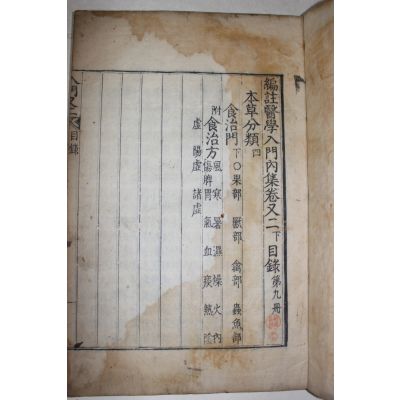 編註醫學入門內集卷又二下目錄 第九册
本草分類四
食治門下〇果部 獸部 禽部 蟲魚部
附食治方風寒暑濕燥火內
傷脾胃氣血痰熱陰
虛陽虛諸虛
目錄